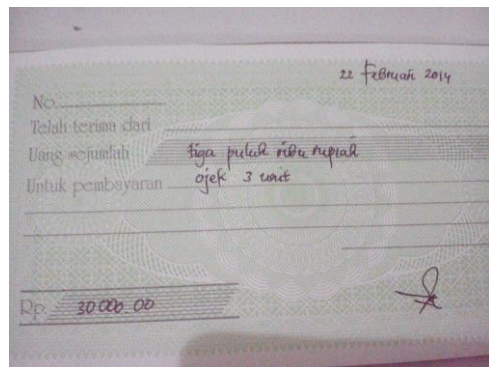 22 Februari 2014
No.
Telah terima dari
Uang sejumlah tiga puluh ribu rupiah
Untuk pembayaran ojek 3 unit
Rp. 30 000 00